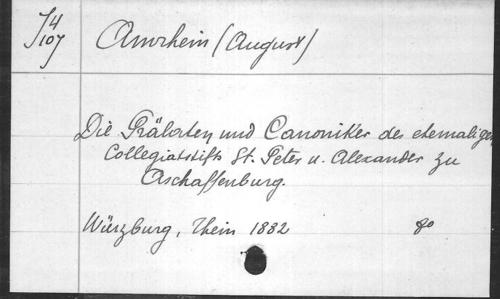 J4
107
Amrhein (August)
Die Prälaten und Canoniker des ehemaligen
Collegiatstifts St. Peter u. Alexander zu
Aschaffenburg.
Würzburg, Thein 1882 8o